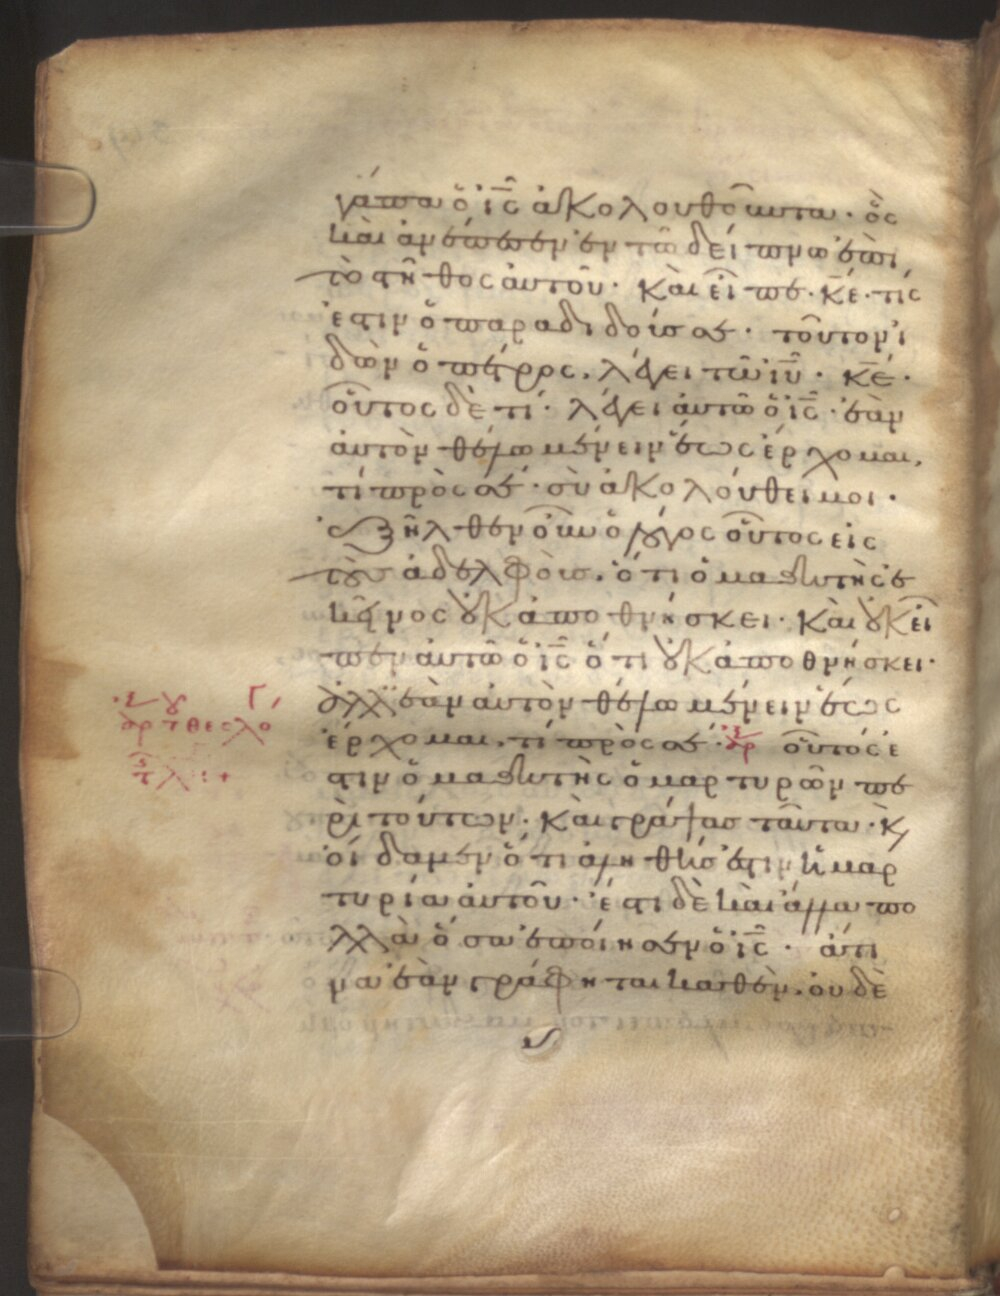 γάπα ὁ ις ἀκολουθοῦντα· ὃς
καὶ ἀνέπεσεν ἐν τῶ δείπνω ἐπὶ
τὸ στῆθος αὐτοῦ· καὶ εἶπε· κε· τίς
ἐστιν ὁ παραδιδούς σε· τοῦτον ἰ
δὼν ὁ πέτρος, λέγει τῶ ιυ· κε·
οὗτος δὲ τί· λέγει αὐτῶ ὁ ις· ἐὰν
αὐτὸν θέλω μένειν ἕως ἔρχομαι,
τί πρὸς σέ· σὺ ἀκολούθει μοι·
ἐξῆλθεν οὖν ὁ λόγος οὗτος εἰς
τοὺς ἀδελφούς, ὅτι ὁ μαθητὴς ἐ
κεῖνος οὐκ ἀποθνήσκει· καὶ οὐκ εἶ
πεν αὐτῶ ὁ ις ὅτι οὐκ ἀποθνήσκει·
ἀλλ' ἐὰν αὐτὸν θέλω μένειν ἕως
ἔρχομαι, τί πρὸς σέ· αρ οὗτός ἐ
στιν ὁ μαθητὴς ὁ μαρτυρῶν πε
ρὶ τούτων· καὶ γράψας ταῦτα· κ
οἴδαμεν ὅτι ἀληθής ἐστιν ἡ μαρ
τυρία αὐτοῦ· ἔστι δὲ καὶ ἄλλα πο
λλὰ ὅσα ἐποίησεν ὁ ις· ἅτι
να ἐὰν γράφηται καθέν, οὐδὲ